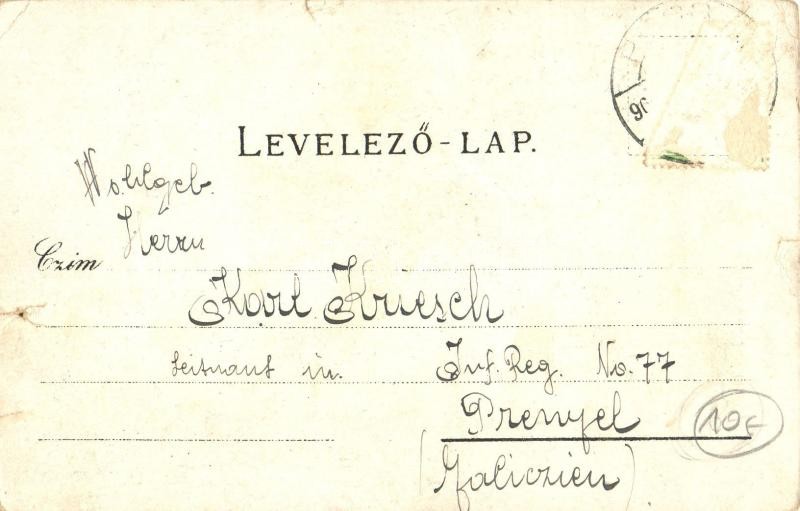 LEVELEZŐ-LAP.
Wohlgeb.
Herrn
Czim
Karl Kriesch
Leitnant in. Inf. Reg. No. 77
Prenyel
(Galiczien)
10F